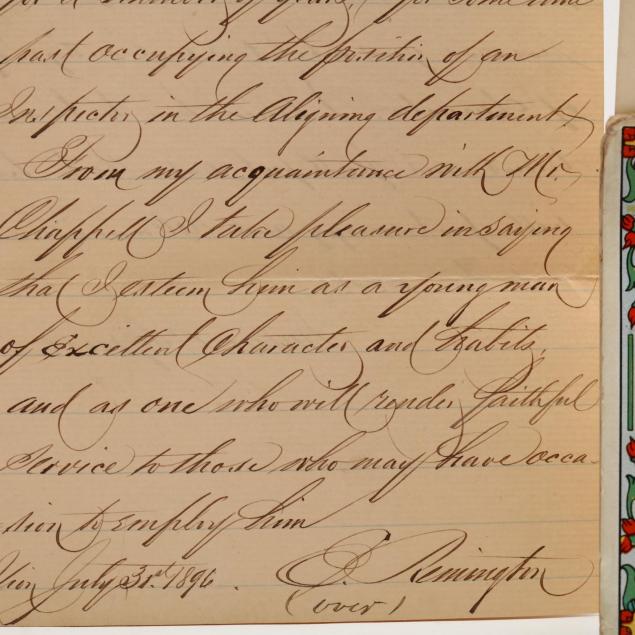 for a number of years, for some time
past occupying the position of an
Inspector in the Aligning department.
From my acquaintance with Mr.
Chappell I take pleasure in saying
that I esteem him as a young man
of excellent character and habits,
and as one who will render faithful
service to those who may have occa-
sion to employ him
Ilion July 31st 1896.
E Remington
(over)